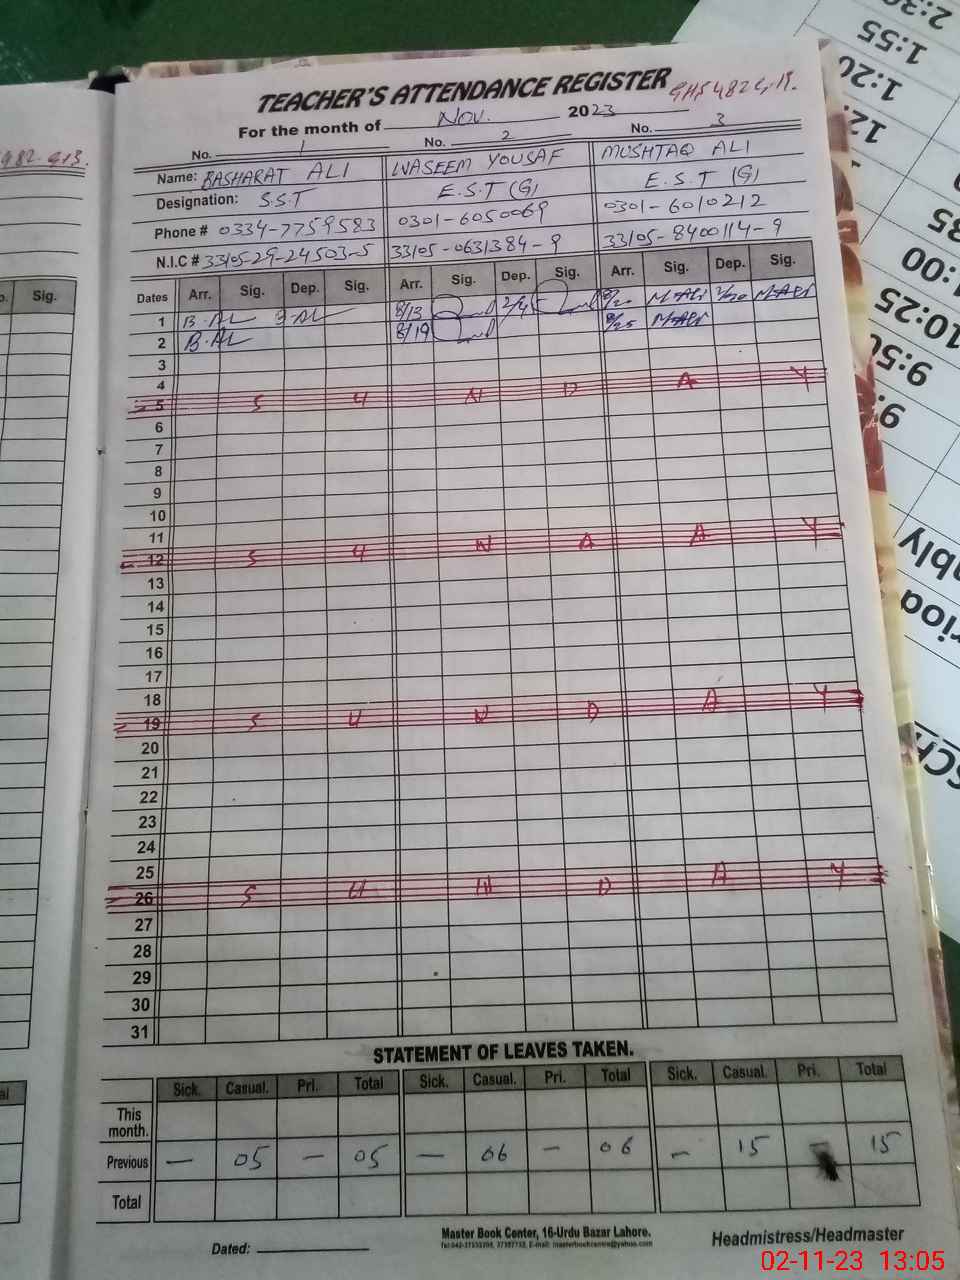 TEACHER'S ATTENDANCE REGISTER
GHS 482 G.B.
For the month of Nov. 2023
No. 1 No. 2 No. 3
Name: BASHARAT ALI WASEEM YOUSAF MUSHTAQ ALI
Designation: S.S.T E.S.T (G) E.S.T (G)
Phone # 0334-7759583 0301-6050069 0301-6010212
N.I.C # 33105-29-24503-5 33105-0631384-9 33105-8400114-9
Dates Arr. Sig. Dep. Sig. Arr. Sig. Dep. Sig. Arr. Sig. Dep. Sig.
1 8/13 M.Ali 2/20 M.Ali
2 8/19 8/25 M.Ali
3
4
5 S U N D A Y
6
7
8
9
10
11
12 S U N D A Y
13
14
15
16
17
18
19 S U N D A Y
20
21
22
23
24
25
26 S U N D A Y
27
28
29
30
31
STATEMENT OF LEAVES TAKEN.
Sick. Casual. Pri. Total Sick. Casual. Pri. Total Sick. Casual. Pri. Total
This month.
Previous — 05 — 05 — 06 — 06 — 15 — 15
Total
Master Book Center, 16-Urdu Bazar Lahore.
Dated:
Headmistress/Headmaster
02-11-23 13:05
Sig.
482 G.B.
2:30
1:55
1:20
1:00
10:25
9:50